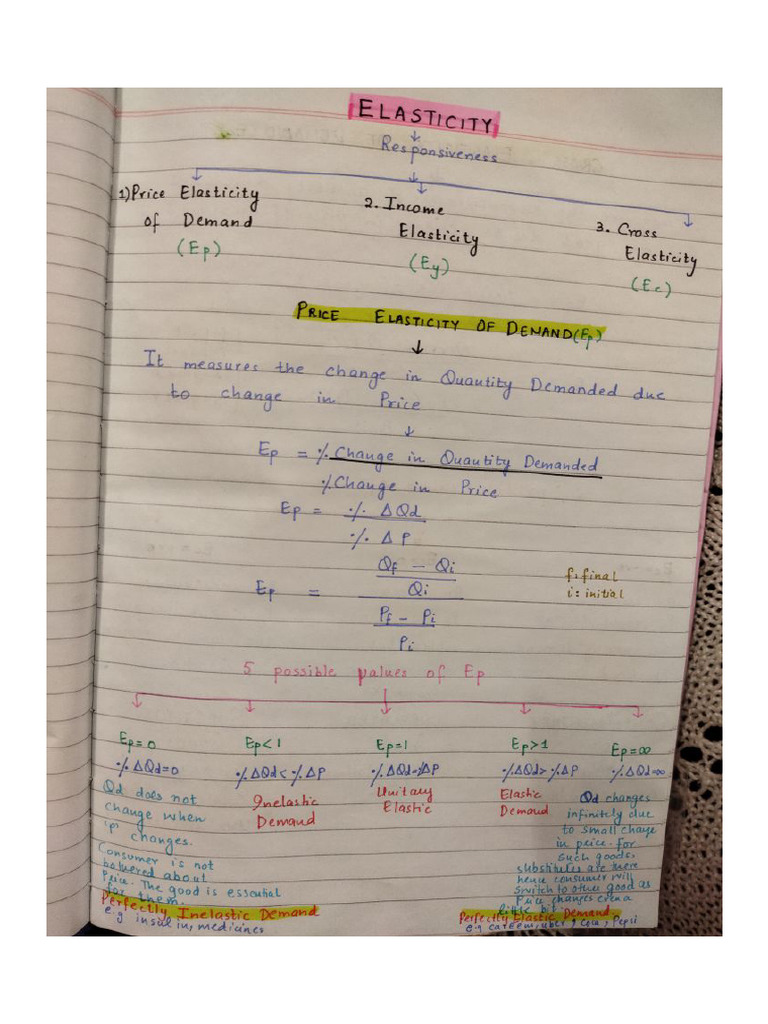 ELASTICITY
Responsiveness
1) Price Elasticity
of Demand
(Ep)
2. Income
Elasticity
(Ey)
3. Cross
Elasticity
(Ec)
PRICE ELASTICITY OF DEMAND (Ep)
It measures the change in Quantity Demanded due
to change in Price
Ep = % Change in Quantity Demanded
% Change in Price
Ep = % ΔQd
% ΔP
Qf - Qi
Qi
Ep =
Pf - Pi
Pi
f: final
i: initial
5 possible values of Ep
Ep=0
%ΔQd=0
Qd does not
change when
'p' changes.
Consumer is not
bothered about
Price. The good is essential
for them.
Perfectly Inelastic Demand
e.g insulin, medicines
Ep<1
%ΔQd<%ΔP
Inelastic
Demand
Ep=1
%ΔQd=%ΔP
Unitary
Elastic
Ep>1
%ΔQd>%ΔP
Elastic
Demand
Ep=∞
%ΔQd=∞
Qd changes
infinitely due
to small change
in price. for
such goods,
substitutes are more
hence consumer will
switch to other good as
Price changes even a
little bit.
Perfectly Elastic Demand.
e.g careem, uber, Pepsi